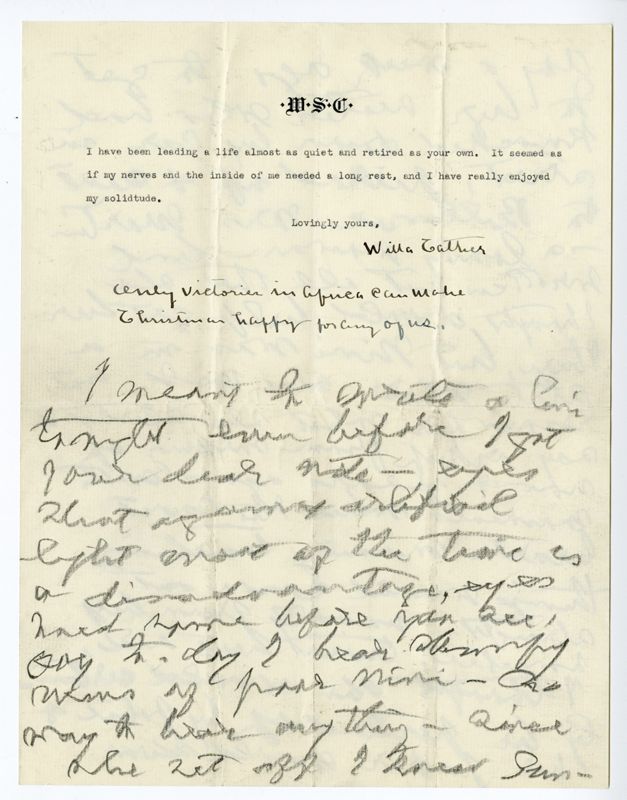 ·W·S·C·
I have been leading a life almost as quiet and retired as your own. It seemed as
if my nerves and the inside of me needed a long rest, and I have really enjoyed
my solidtude.
Lovingly yours,
Willa Cather
Only victories in Africa can make
Christmas happy for any of us.
I meant to write a line
tonight even before I got
your dear note — eyes
shut against artificial
light most of the time is
a disadvantage, eyes
before you see,
to-day I hear
news of poor Nini —
way to hear anything — since
she set off I